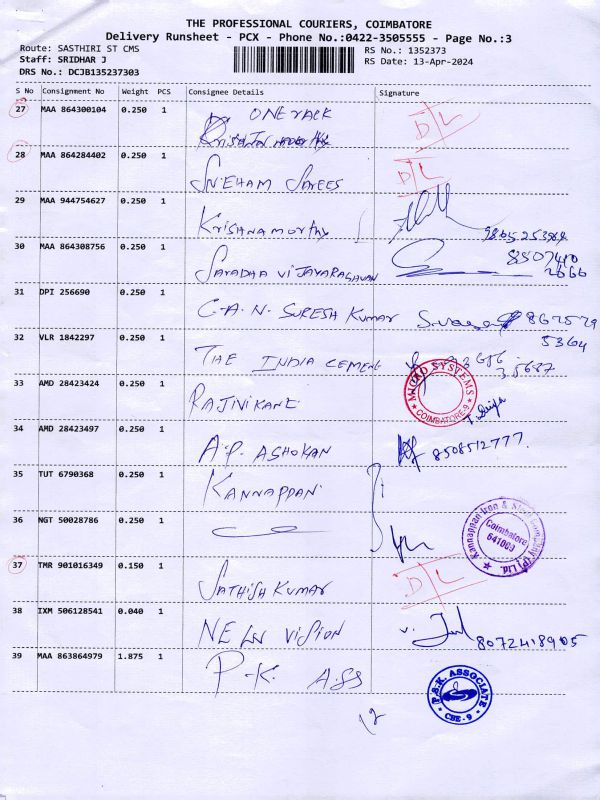 THE PROFESSIONAL COURIERS, COIMBATORE
Delivery Runsheet - PCX - Phone No.:0422-3505555 - Page No.:3
Route: SASTHIRI ST CMS
RS No.: 1352373
Staff: SRIDHAR J
RS Date: 13-Apr-2024
DRS No.: DCJB135237303
S No Consignment No Weight PCS Consignee Details Signature
27 MAA 864300104 0.250 1 ONE RACK D L
28 MAA 864284402 0.250 1 D L
SNEHAM SAREES
29 MAA 944754627 0.250 1
Krishnamorthy
30 MAA 864308756 0.250 1 8507410
SARADHA VIJAYARAGAVAN 2660
31 DPI 256690 0.250 1
C.A.N. SURESH KUMAR
32 VLR 1842297 0.250 1 5364
THE INDIA CEMENT
33 AMD 28423424 0.250 1 MICRO SYSTEMS
RAJNIKANT COIMBATORE-9
34 AMD 28423497 0.250 1
A.P. ASHOKAN 8508512777
35 TUT 6790368 0.250 1
KANNAPPAN
36 NGT 50028786 0.250 1 Kannappan Iron & Steel Company (P) Ltd.
Coimbatore
641009
37 TMR 901016349 0.150 1 D L
SATHISH KUMAR
38 IXM 506128541 0.040 1
NEW VISION 8072418905
39 MAA 863864979 1.875 1 P.S.K. ASSOCIATE
P.K. ASS CBE-9
12